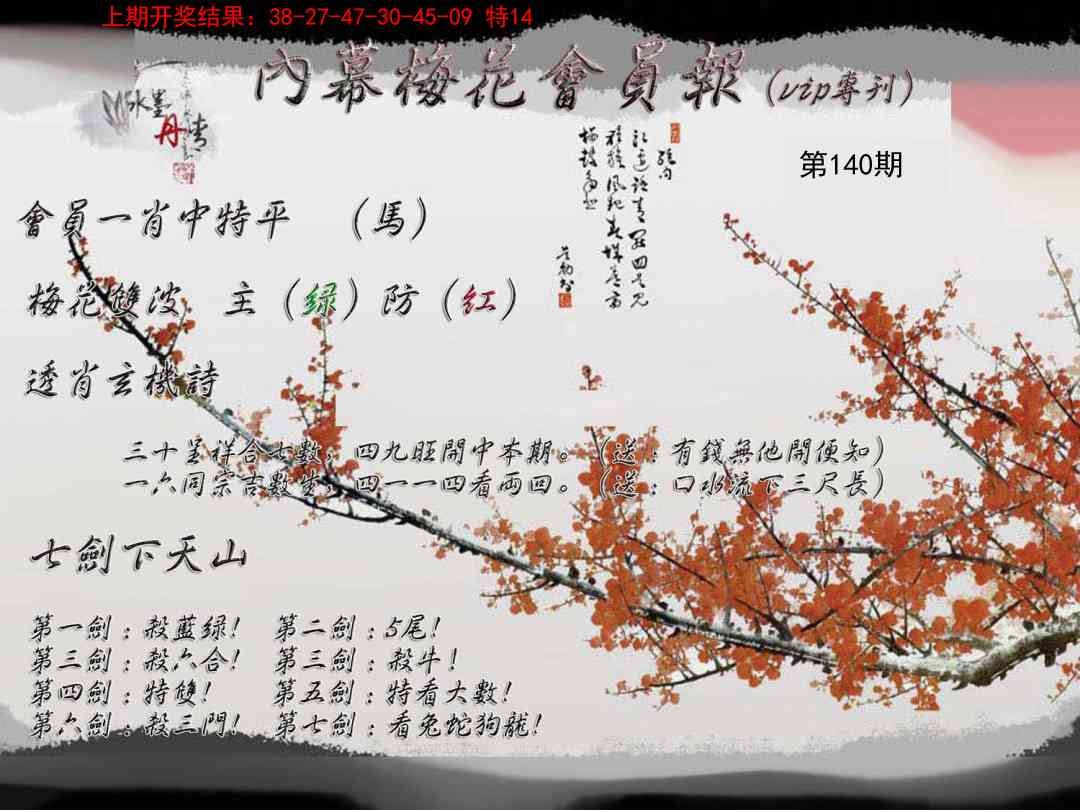 上期开奖结果：38-27-47-30-45-09 特14
內幕梅花會員報(vip專刊)
水墨
丹青
第140期
會員一肖中特平 （馬）
梅花雙波 主（绿）防（红）
透肖玄機詩
三十呈祥合七數，四九旺開中本期。（送：有錢無他開便知）
一六同宗吉數生，四一一四看両回。（送：口水流下三尺長）
七劍下天山
第一劍：殺藍绿！ 第二劍：5尾！
第三劍：殺六合！ 第三劍：殺牛！
第四劍：特雙！ 第五劍：特看大數！
第六劍：殺三門！ 第七劍：看兔蛇狗龍！